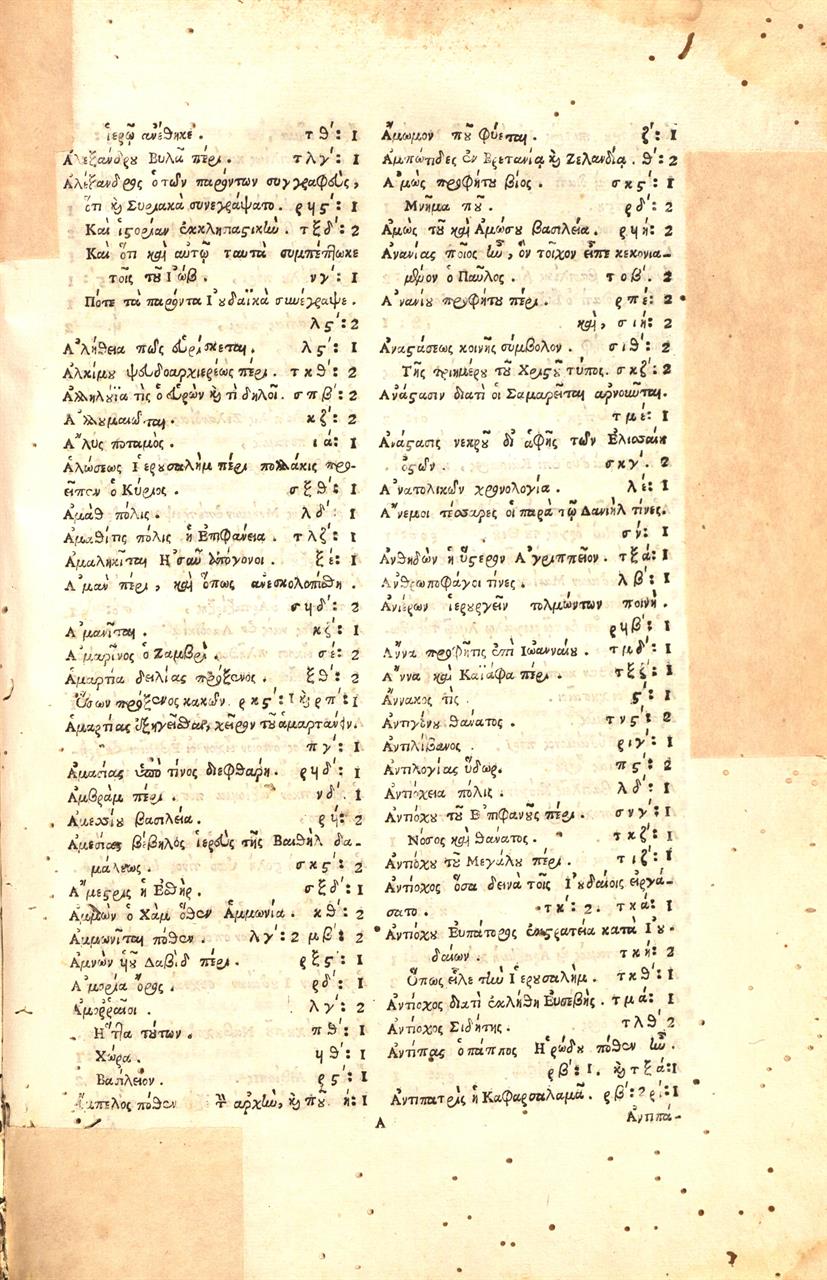 ἱερῷ ἀνέθηκε. τθ΄: 1
Ἀλεξάνδρου Βυλᾶ πέρι. τλγ΄: 1
Ἀλέξανδρος ὁ τῶν παρόντων συγγραφεὺς,
ὅτι καὶ Συριακὰ συνεγράψατο. ρϟϛ΄: 1
Καὶ ἱστορίαν ἐκκλησιαστικὴν. τξδ΄: 2
Καὶ ὅτι καὶ αὐτῷ ταυτὰ συμπέπτωκε
τοῖς τοῦ Ἰώβ. νγ΄: 1
Πότε τὰ παρόντα Ἰουδαϊκὰ συνέγραψε.
λϛ΄: 2
Ἀλήθεια πῶς εὑρίσκεται. λϛ΄: 1
Ἀλκίμου ψευδοαρχιερέως πέρι. τκθ΄: 2
Ἀλληλούϊα τὶς ὁ εὑρὼν καὶ τὶ δηλοῖ. σπβ΄: 2
Ἀλλουμαιῶται. κζ΄: 2
Ἄλυς ποταμός. ιά: 1
Ἁλώσεως Ἱερουσαλὴμ πέρι πολλάκις προ-
εῖπεν ὁ Κύριος. σξθ΄: 1
Ἀμὰθ πόλις. λδ΄. 1
Ἀμαθίτις πόλις ἡ Ἐπιφάνεια. τλζ΄: 1
Ἀμαληκῖται Ἠσαῦ ἀπόγονοι. ξέ: 1
Ἀμὰν πέρι, καὶ ὅπως ἀνεσκολοπίσθη.
σϟδ΄: 2
Ἀμανῖται. κζ΄: 1
Ἀμαρῖνος ὁ Ζαμβρὶ. σέ: 2
Ἁμαρτία δειλίας πρόξενος. ξθ΄: 2
Ὅσων πρόξενος κακῶν. ρκϛ΄: 1 καὶ ρπ΄: 1
Ἁμαρτίας ἐξηγεῖσθαι, χεῖρον τοῦ ἁμαρτάνειν.
πγ΄: 1
Ἀμασίας ὑπὸ τίνος διεφθάρη. ρϟδ΄: 1
Ἀμβρὰμ πέρι. νδ΄. 1
Ἀμεσσίου βασιλεία. ρϟ: 2
Ἀμεσίας βέβηλος ἱερεὺς τῆς Βαιθὴλ δα-
μάλεως. σκϛ΄: 2
Ἄμεστρις ἡ Ἐσθὴρ. σξδ΄: 1
Ἀμμὼν ὁ Χὰμ ὅθεν Ἀμμωνία. κθ΄: 2
Ἀμμωνῖται πόθεν. λγ΄: 2 μβ΄: 2
Ἀμνὼν υἱοῦ Δαβὶδ πέρι. ρξϛ΄: 1
Ἀμορία ὄρος. ρδ΄: 1
Ἀμοῤῥαῖοι. λγ΄: 2
Ἧττα τούτων. πθ΄: 1
Χώρα. ϟθ΄: 1
Βασίλειον. ρϛ΄: 1
Ἄμπελος πόθεν τὴν ἀρχὴν, καὶ ποῦ. ή: 1
Ἄμωμον ποῦ φύεται. ζ΄: 1
Ἀμπώτιδες ἐν Βρετανίᾳ καὶ Ζελανδίᾳ. θ΄: 2
Ἀμὼς προφήτου βίος. σκϛ΄: 1
Μνῆμα ποῦ. ρδ΄: 2
Ἀμὼς τοῦ καὶ Ἀμώσου βασιλεία. ρϟή: 2
Ἀνανίας ποῖος ἦν, ὃν τοῖχον εἶπε κεκονια-
μένον ὁ Παῦλος. τοβ΄. 2
Ἀνανίου προφήτου πέρι. ρπέ: 2
καὶ, σιή: 2
Ἀναστάσεως κοινῆς σύμβολον. σιθ΄: 2
Τῆς τριημέρου τοῦ Χριστοῦ τύπος. σκζ΄: 2
Ἀνάστασιν διατὶ οἱ Σαμαρεῖται ἀρνοῦνται.
τμέ: 1
Ἀνάστασις νεκροῦ δι᾽ ἁφῆς τῶν Ἐλισσαίου
ὀστῶν. σκγ΄. 2
Ἀνατολικῶν χρονολογία. λέ: 1
Ἄνεμοι τέσσαρες οἱ παρὰ τῷ Δανιὴλ τίνες.
σν΄: 1
Ἀνθηδὼν ἡ ὕστερον Ἀγριππεῖον. τξά: 1
Ἀνθρωποφάγοι τίνες. λβ΄: 1
Ἀνιέρων ἱερουργεῖν τολμώντων ποινὴ.
ρϟβ΄: 1
Ἄννα προφῆτις ἐπὶ Ἰωανναίου. τμδ΄: 1
Ἄννα καὶ Καϊάφα πέρι. τξξ΄: 1
Ἄννακος τὶς. ϛ΄: 1
Ἀντιγόνου θάνατος. τνϛ΄: 2
Ἀντιλίβανος. ριγ΄: 1
Ἀντιλογίας ὕδωρ. πϛ΄: 2
Ἀντιόχεια πόλις. λδ΄: 1
Ἀντιόχου τοῦ Ἐπιφανοῦς πέρι. σνγ΄: 1
Νόσος καὶ θάνατος. τκζ΄: 1
Ἀντιόχου τοῦ Μεγάλου πέρι. τιζ΄: 1
Ἀντίοχος ὅσα δεινὰ τοῖς Ἰουδαίοις εἰργά-
σατο. τκ΄: 2. τκά: 1
Ἀντιόχου Εὐπάτορος ἐκστρατεία κατὰ Ἰου-
δαίων. τκή: 2
Ὅπως εἷλε τὴν Ἱερουσαλὴμ. τκθ΄: 1
Ἀντίοχος διατὶ ἐκλήθη Εὐσεβής. τμά: 1
Ἀντίοχος Σιδήτης. τλθ΄ 2
Ἀντίπας ὁ πάππος Ἡρώδου πόθεν ἦν.
ρβ΄: 1. καὶ τξά: 1
Ἀντιπατρὶς ἡ Καφαρσαλαμᾶ. ρβ΄: 2 ρί: 1
A Ἀντιπά-